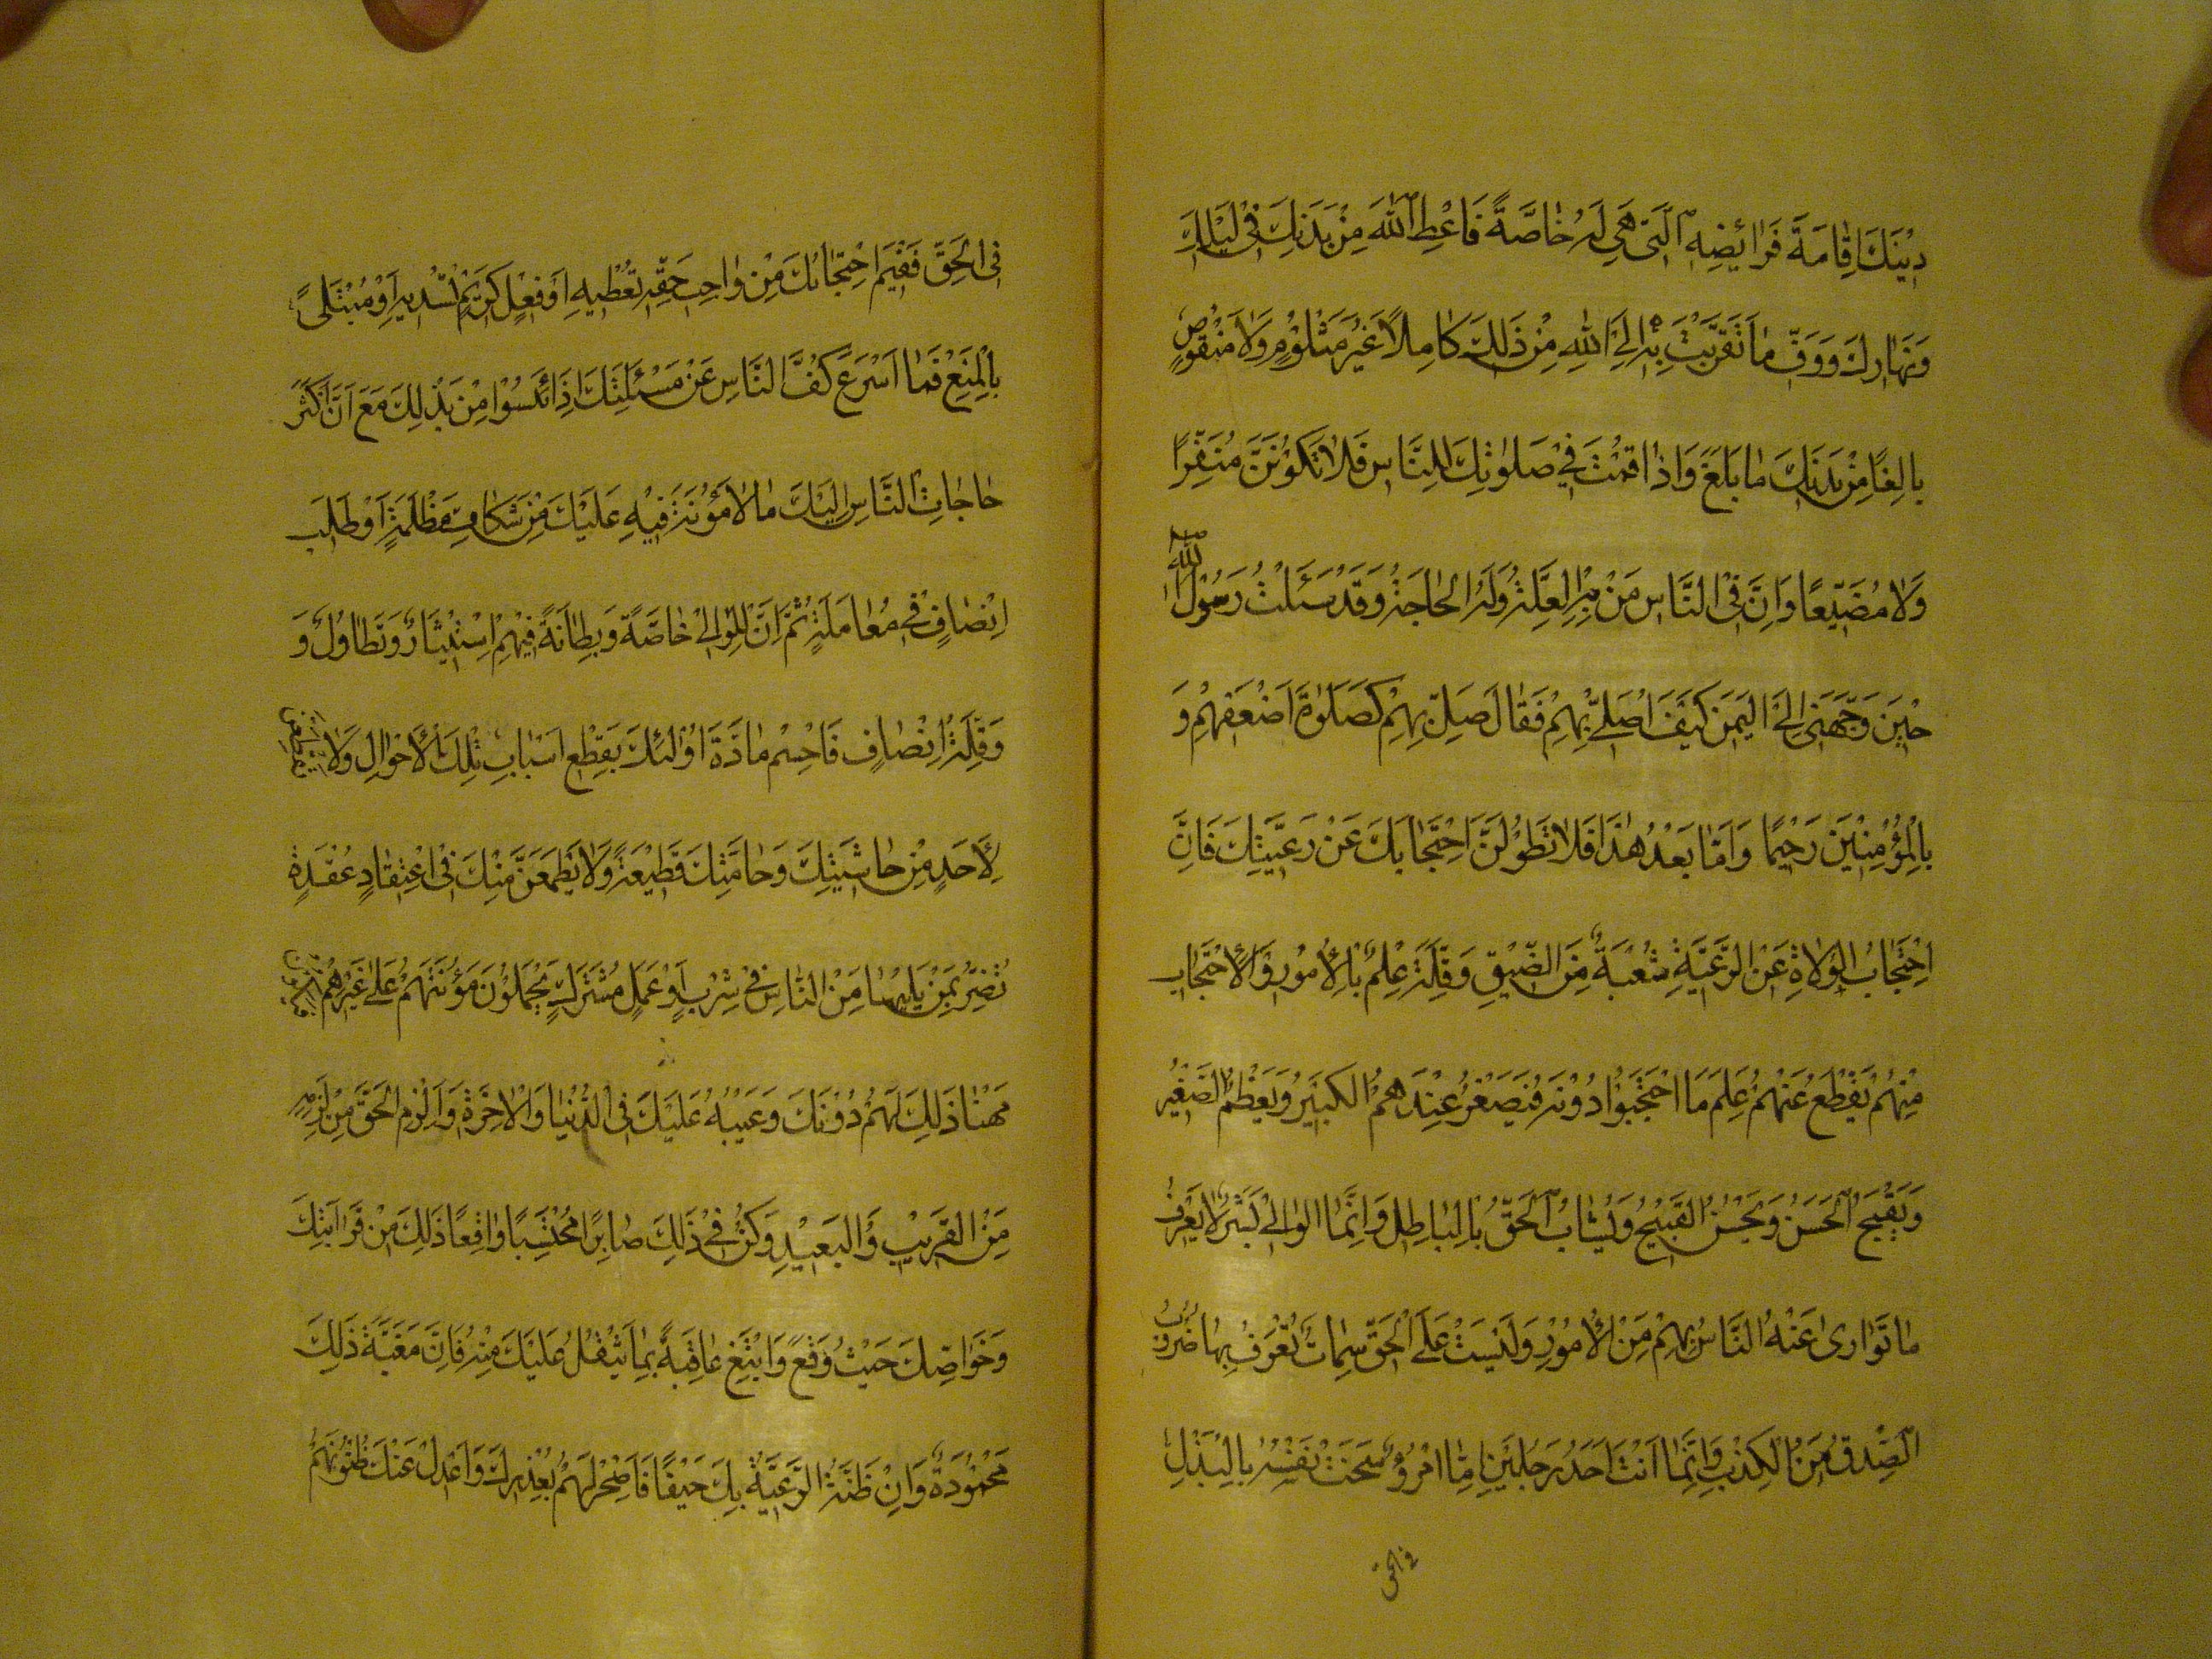 دِيْنَكَ اِقَامَةَ فَرَائِضِهِ الَّتِى هِيَ لَهُ خَاصَّةً فَاَعْطِ اللّٰهَ مِنْ بَدَنِكَ فِى لَيْلِكَ
وَنَهَارِكَ وَوَفِّ مَا تَقَرَّبْتَ بِهِ اِلَى اللّٰهِ مِنْ ذَلِكَ كَامِلًا غَيْرَ مَثْلُوْمٍ وَلَا مَنْقُوْصٍ
بَالِغًا مِنْ بَدَنِكَ مَا بَلَغَ وَاِذَا قُمْتَ فِيْ صَلٰوتِكَ لِلنَّاسِ فَلَا تَكُوْنَنَّ مُنَفِّرًا
وَلَا مُضَيِّعًا وَاِنَّ فِى النَّاسِ مَنْ بِهِ الْعِلَّةُ وَلَهُ الْحَاجَةُ وَقَدْ سَئَلْتُ رَسُوْلَ اللّٰهِ
حِيْنَ وَجَّهَنِى اِلَى الْيَمَنِ كَيْفَ اُصَلِّى بِهِمْ فَقَالَ صَلِّ بِهِمْ كَصَلٰوةِ اَضْعَفِهِمْ وَ
بِالْمُؤْمِنِيْنَ رَحِيْمًا وَاَمَّا بَعْدُ هٰذَا فَلَا تُطَوِّلَنَّ احْتِجَابَكَ عَنْ رَعِيَّتِكَ فَاِنَّ
احْتِجَابَ الْوُلَاةِ عَنِ الرَّعِيَّةِ شُعْبَةٌ مِنَ الضِّيْقِ وَقِلَّةُ عِلْمٍ بِالْاُمُوْرِ وَالْاِحْتِجَابُ
مِنْهُمْ يَقْطَعُ عَنْهُمْ عِلْمَ مَا احْتَجَبُوْا دُوْنَهُ فَيَصْغُرُ عِنْدَهُمُ الْكَبِيْرُ وَيَعْظُمُ الصَّغِيْرُ
وَيَقْبَحُ الْحَسَنُ وَيَحْسُنُ الْقَبِيْحُ وَيُشَابُ الْحَقُّ بِالْبَاطِلِ وَاِنَّمَا الْوَالِى بَشَرٌ لَا يَعْرِفُ
مَا تَوَارٰى عَنْهُ النَّاسُ بِهِمْ مِنَ الْاُمُوْرِ وَلَيْسَتْ عَلَى الْحَقِّ سِمَاتٌ تُعْرَفُ بِهَا ضُرُوْبُ
الصِّدْقِ مِنَ الْكِذْبِ وَاِنَّمَا اَنْتَ اَحَدُ رَجُلَيْنِ اِمَّا امْرُؤٌ سَخَتْ نَفْسُهُ بِالْبَذْلِ
فى الحق
فِى الْحَقِّ فَفِيْمَ احْتِجَابُكَ مِنْ وَاجِبِ حَقٍّ تُعْطِيْهِ اَوْ فِعْلٍ كَرِيْمٍ تُسْدِيْهِ اَوْ مُبْتَلًى
بِالْمَنْعِ فَمَا اَسْرَعَ كَفَّ النَّاسِ عَنْ مَسْئَلَتِكَ اِذَا اَيِسُوْا مِنْ بَذْلِكَ مَعَ اَنَّ اَكْثَرَ
حَاجَاتِ النَّاسِ اِلَيْكَ مَا لَا مَؤُنَةَ فِيْهِ عَلَيْكَ مِنْ شَكَاةِ مَظْلَمَةٍ اَوْ طَلَبِ
اِنْصَافٍ فِى مُعَامَلَةٍ ثُمَّ اِنَّ لِلْوَالِىْ خَاصَّةً وَبِطَانَةً فِيْهِمُ اسْتِيْثَارٌ وَتَطَاوُلٌ وَ
وَقِلَّةُ اِنْصَافٍ فَاحْسِمْ مَادَّةَ اُولٰئِكَ بِقَطْعِ اَسْبَابِ تِلْكَ الْاَحْوَالِ وَلَا تُقْطِعَنَّ
لِاَحَدٍ مِنْ حَاشِيَتِكَ وَحَامَّتِكَ قَطِيْعَةً وَلَا يَطْمَعَنَّ مِنْكَ فِى اعْتِقَادِ عُقْدَةٍ
تُضِرُّ بِمَنْ يَلِيْهَا مِنَ النَّاسِ فِىْ شِرْبٍ اَوْ عَمَلٍ مُشْتَرَكٍ يَحْمِلُوْنَ مَؤُنَتَهُمْ عَلَى غَيْرِهِمْ فَيَكُوْنَ
مَهْنَاُ ذَلِكَ لَهُمْ دُوْنَكَ وَعَيْبُهُ عَلَيْكَ فِى الدُّنْيَا وَالْاٰخِرَةِ وَاَلْزِمِ الْحَقَّ مَنْ لَزِمَهُ
مِنَ الْقَرِيْبِ وَالْبَعِيْدِ وَكُنْ فِىْ ذَلِكَ صَابِرًا مُحْتَسِبًا وَاقِعًا ذَلِكَ مِنْ قَرَابَتِكَ
وَخَوَاصِّكَ حَيْثُ وَقَعَ وَابْتَغِ عَاقِبَةً بِمَا يَثْقُلُ عَلَيْكَ مِنْهُ فَاِنَّ مَغَبَّةَ ذَلِكَ
مَحْمُوْدَةٌ وَاِنْ ظَنَّتِ الرَّعِيَّةُ بِكَ حَيْفًا فَاَصْحِرْ لَهُمْ بِعُذْرِكَ وَاعْدِلْ عَنْكَ ظُنُوْنَهُمْ